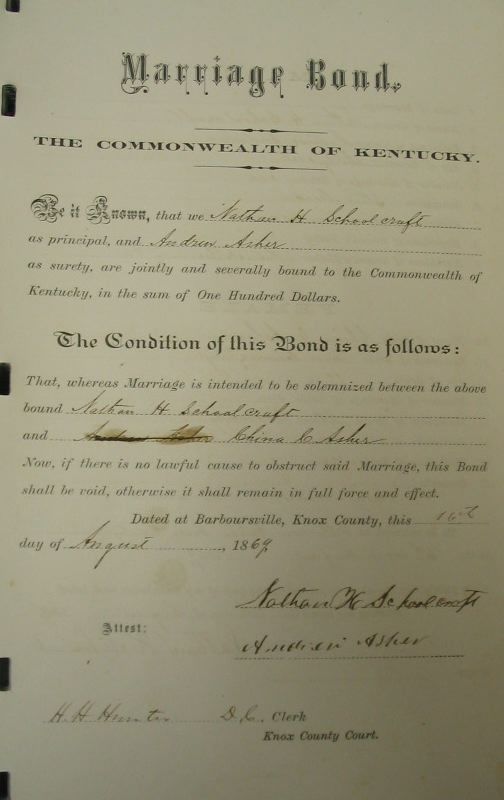 Marriage Bond.
THE COMMONWEALTH OF KENTUCKY.
Be it Known, that we Nathan H Schoolcraft
as principal, and Andrew Asher
as surety, are jointly and severally bound to the Commonwealth of
Kentucky, in the sum of One Hundred Dollars.
The Condition of this Bond is as follows:
That, whereas Marriage is intended to be solemnized between the above
bound Nathan H Schoolcraft
and Andrew Asher China C Asher
Now, if there is no lawful cause to obstruct said Marriage, this Bond
shall be void, otherwise it shall remain in full force and effect.
Dated at Barboursville, Knox County, this 16th
day of August, 1869
Nathan H Schoolcraft
Andrew Asher
Attest:
H. H. Hunter D.C. Clerk
Knox County Court.